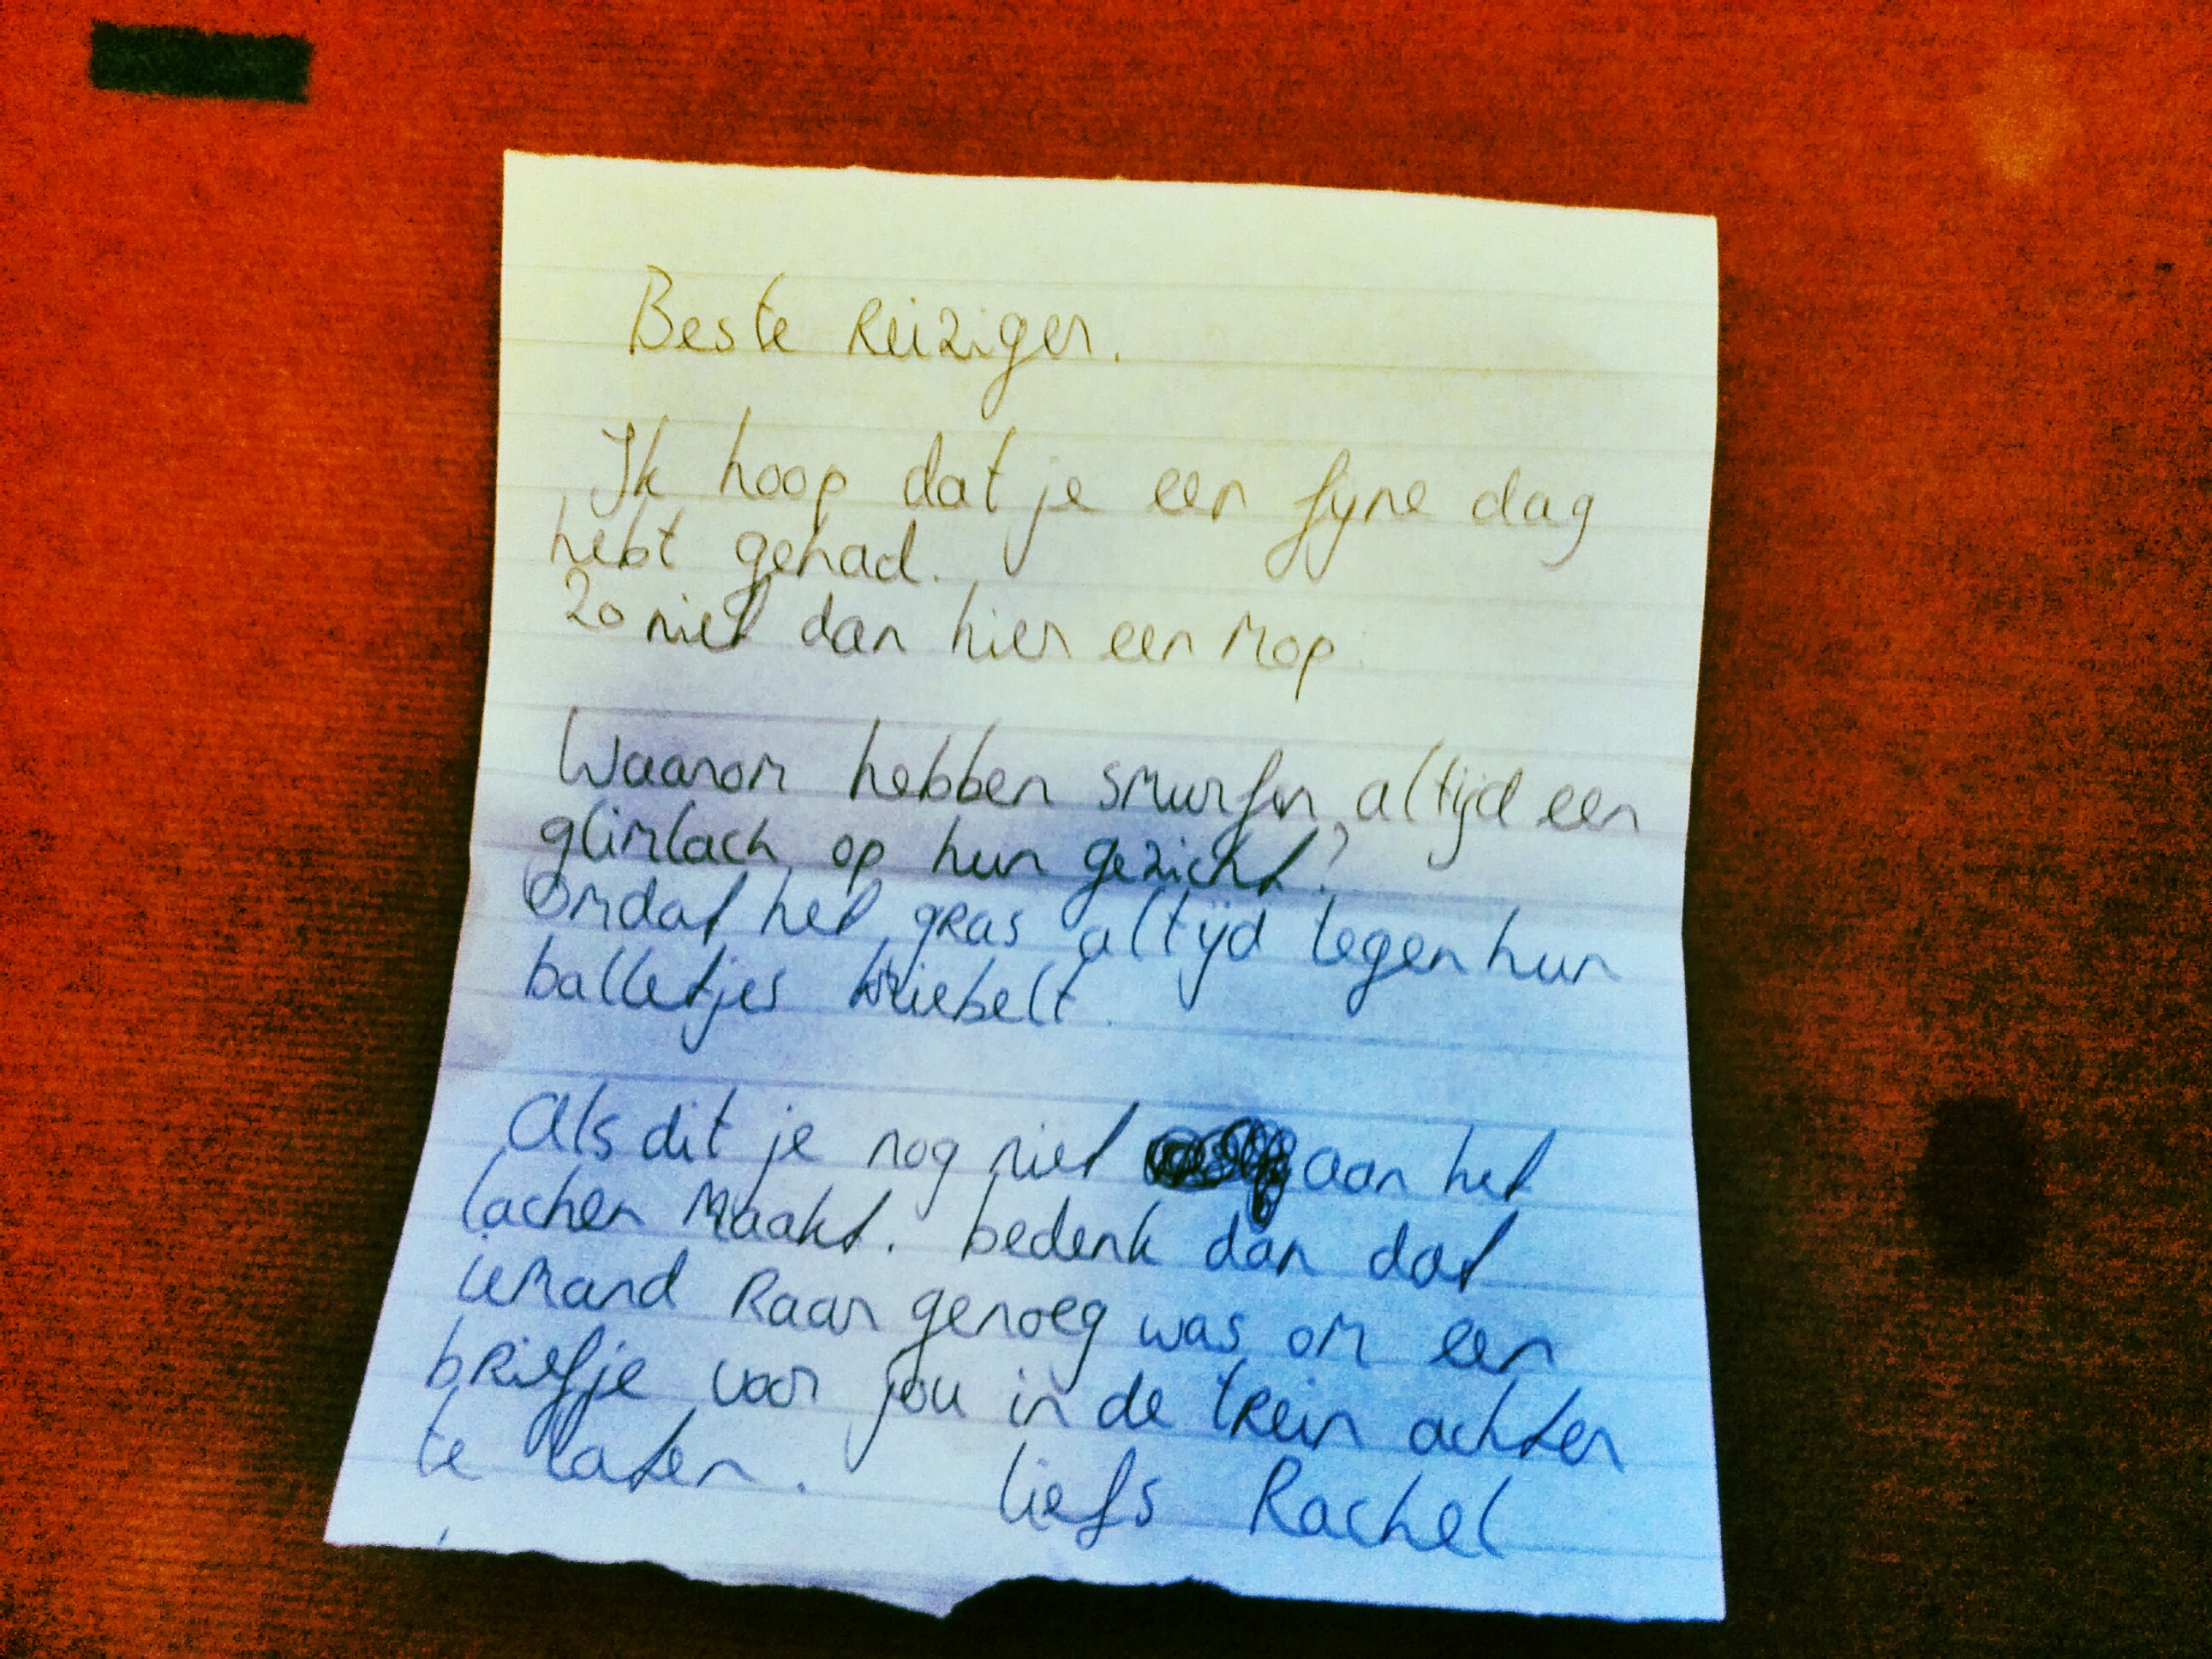 Beste Reiziger.
Ik hoop dat je een fijne dag
hebt gehad.
Zo niet dan hier een mop.
Waarom hebben smurfen altijd een
glimlach op hun gezicht?
Omdat het gras altijd tegen hun
balletjes kriebelt.
Als dit je nog niet aan het
lachen maakt. bedenk dan dat
iemand Raar genoeg was om een
bRiefje voor jou in de tRein achter
te laten. liefs Rachel